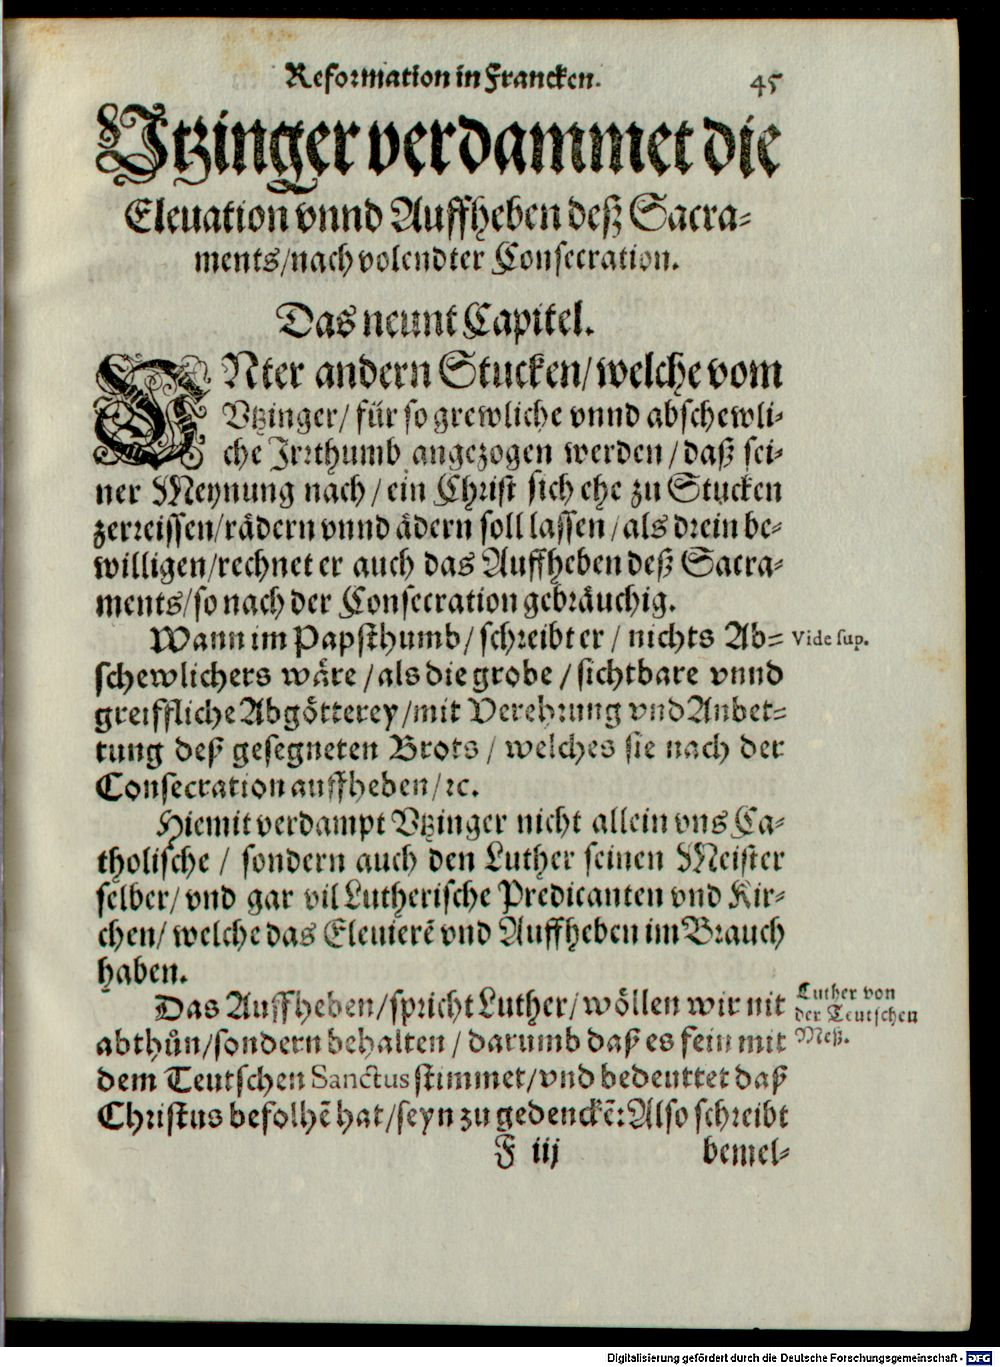 Reformation in Francken. 45
Vtzinger verdammet die
Eleuation vnnd Auffheben deß Sacra⸗
ments/nach volendter Consecration.
Das neunt Capitel.
VNter andern Stucken/welche vom
Vtzinger/ für so grewliche vnnd abschewli⸗
che Irrthumb angezogen werden/daß sei⸗
ner Meynung nach/ein Christ sich ehe zu Stucken
zerreissen/rädern vnnd ädern soll lassen/als drein be⸗
willigen/rechnet er auch das Auffheben deß Sacra⸗
ments/so nach der Consecration gebräuchig.
Wann im Papsthumb/schreibt er/nichts Ab⸗
schewlichers wäre/als die grobe/sichtbare vnnd
greiffliche Abgötterey/mit Verehrung vnd Anbet⸗
tung deß gesegneten Brots/welches sie nach der
Consecration auffheben/ꝛc.
Vide sup.
Hiemit verdampt Vtzinger nicht allein vns Ca⸗
tholische/ sondern auch den Luther seinen Meister
selber/vnd gar vil Lutherische Predicanten vnd Kir⸗
chen/welche das Eleuierē vnd Auffheben im Brauch
haben.
Das Auffheben/spricht Luther/wöllen wir nit
abthůn/sondern behalten/darumb daß es fein mit
dem Teutschen Sanctus stimmet/vnd bedeuttet daß
Christus befolhē hat/seyn zu gedenckē: Also schreibt
Luther von
der Teutschen
Meß.
F iij bemel⸗
Digitalisierung gefördert durch die Deutsche Forschungsgemeinschaft - DFG